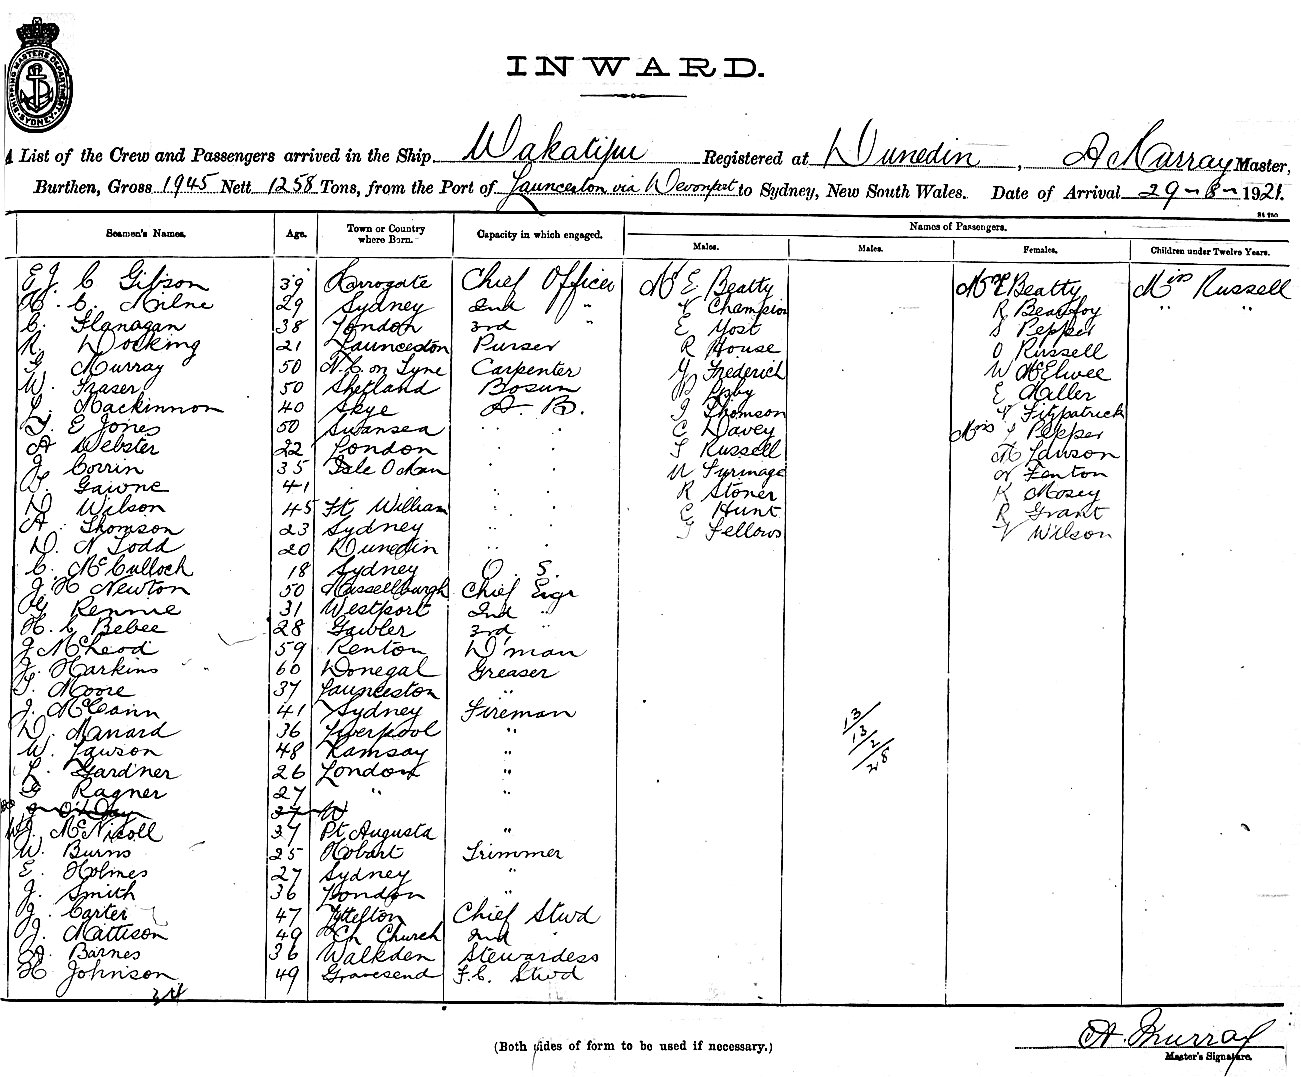 SHIPPING MASTERS DEPARTMENT SYDNEY
INWARD.
List of the Crew and Passengers arrived in the Ship Wakatipu Registered at Dunedin, A Murray Master,
Burthen, Gross 1945 Nett 1258 Tons, from the Port of Launceston via Devonport to Sydney, New South Wales. Date of Arrival 29-8-1921.
Names of Passengers.
Seamen's Names. Age. Town or Country where Born. Capacity in which engaged. Males. Males. Females. Children under Twelve Years.
E J C Gibson 39 Harrogate Chief Officer Mr E Beatty Mrs E Beatty Miss Russell
H. C. Milne 29 Sydney 2nd " Champion R Beaufoy " "
C. Flanagan 38 London 3rd " E Yost S Pepper
R. Docking 21 Launceston Purser R House O Russell
G. Murray 50 N.C. on Tyne Carpenter G Frederich W McElwee
W. Fraser 50 Shetland Bosun E Miller
L. Mackinnon 40 Skye A. B. Thomson Fitzpatrick
T. E Jones 50 Swansea " " C Davey Miss Pepper
A Webster 22 London " " Russell M Lawson
J. Corrin 35 Isle O Man " " W Surmage Fenton
Gawne 41 " " " R Stoner K Mosey
D. Wilson 45 Ft. William " " C Hunt R Grant
A. Thomson 23 Sydney " " Fellows Wilson
D. N Todd 20 Dunedin " "
C. McCulloch 18 Sydney O. S.
J. H Newton 50 Musselburgh Chief Eigr
Rennie 31 Westport 2nd "
H. C Bebee 28 Gawler 3rd "
J McLeod 59 Renton D'man
J. Harkins 60 Donegal Greaser
T. Moore 37 Launceston "
J. McCann 41 Sydney Fireman
D. Manard 36 Liverpool "
W. Lawson 48 Ramsay "
L. Gardner 26 London "
G Ragner 27 " "
37
W J. McNicoll 37 Pt Augusta "
W. Burns 25 Hobart Trimmer
E. Holmes 27 Sydney "
J. Smith 36 London "
J. Carter 47 Lyttelton Chief Stwd
J. Mattison 49 Ch Church 2nd "
A. Barnes 36 Walkden Stewardess
H Johnson 49 Gravesend F.C. Stwd
34
13/
13/
2/
28
(Both sides of form to be used if necessary.)
A. Murray
Master's Signature.